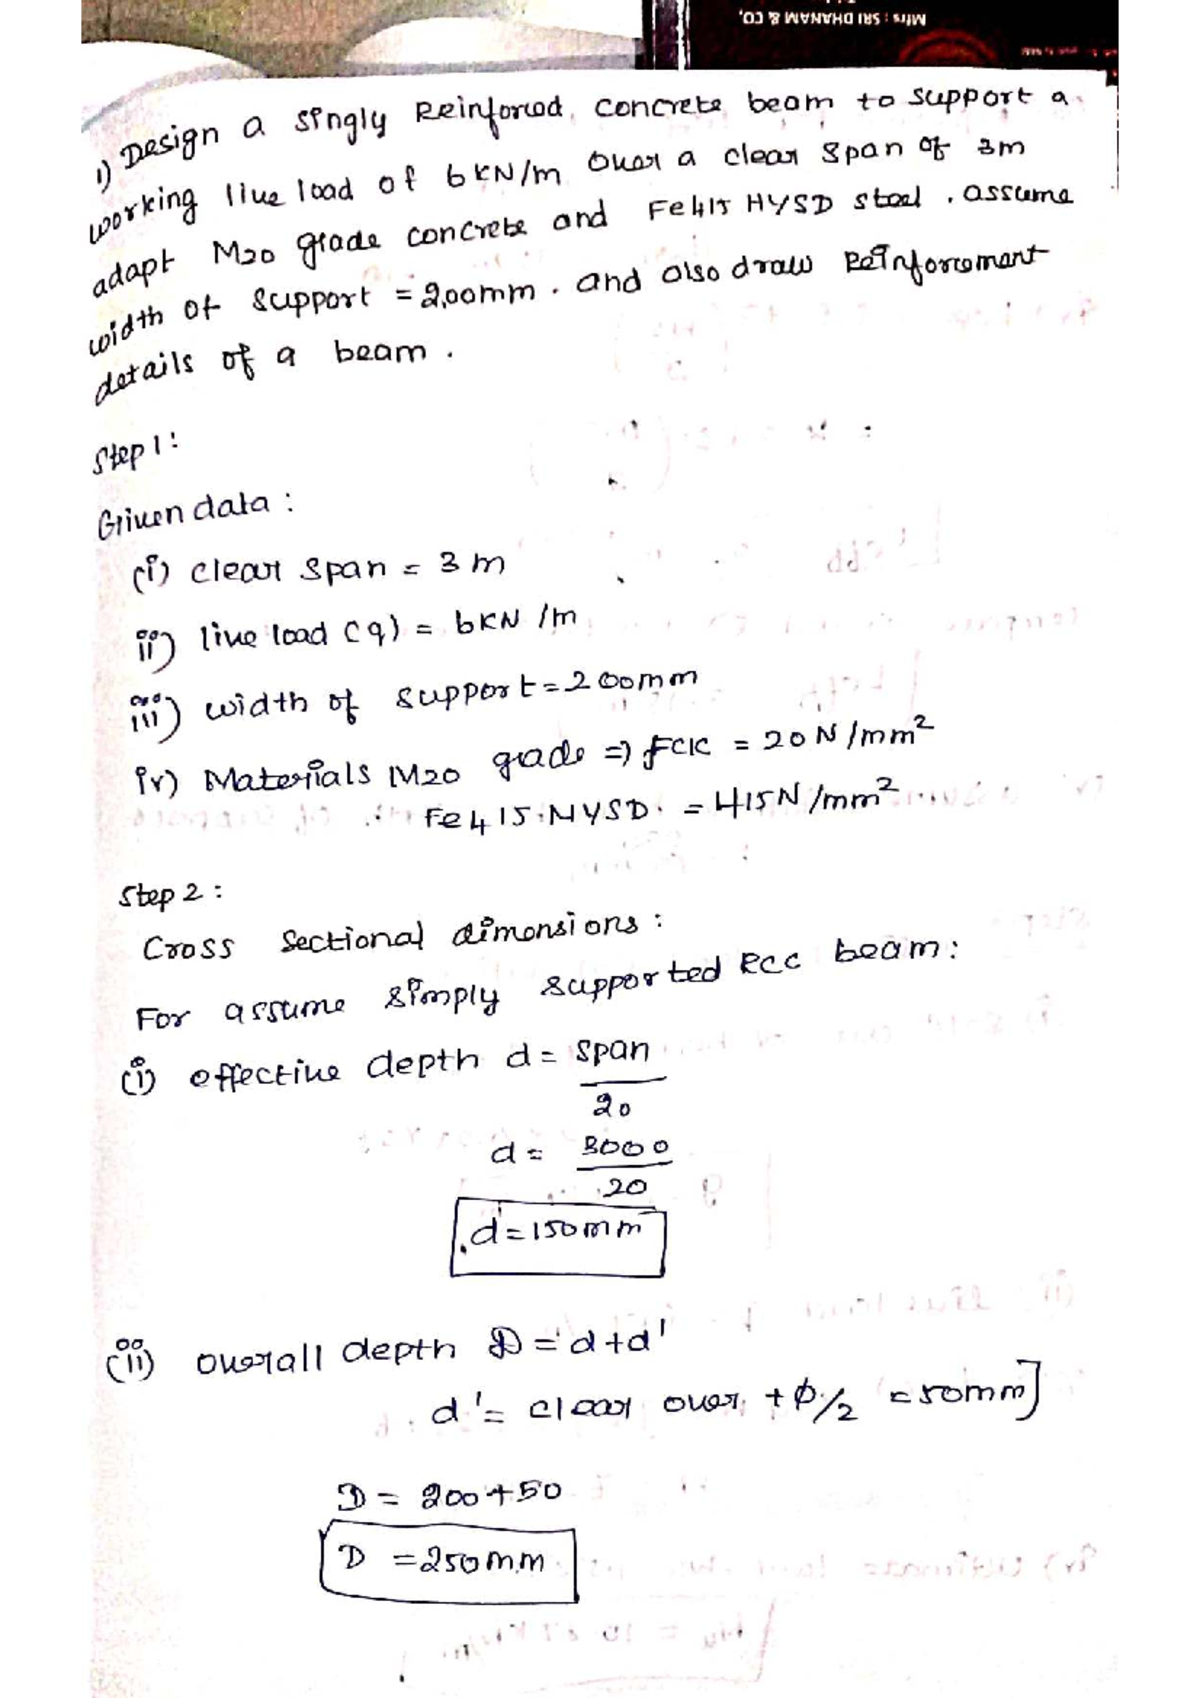 Mfrs : SRI DHANAM & CO,
1) Design a singly Reinforced concrete beam to support a
working live load of 6KN/m Over a clear span of 3m
adapt M20 grade concrete and Fe415 HYSD steel . assume
width of support = 200mm . and also draw Reinforcement
details of a beam .
Step 1 :
Given data :
(i) clear span = 3 m
ii) live load (q) = 6KN /m
iii) width of support = 200mm
iv) Materials M20 grade => FCK = 20 N /mm²
Fe 415 HYSD = 415 N /mm²
Step 2 :
Cross Sectional dimensions :
For assume simply supported RCC beam :
(i) effective depth d = span
20
d = 3000
20
d = 150mm
(ii) overall depth D = d + d'
d' = clear over + φ/2 = 50mm]
D = 200 + 50
D = 250mm